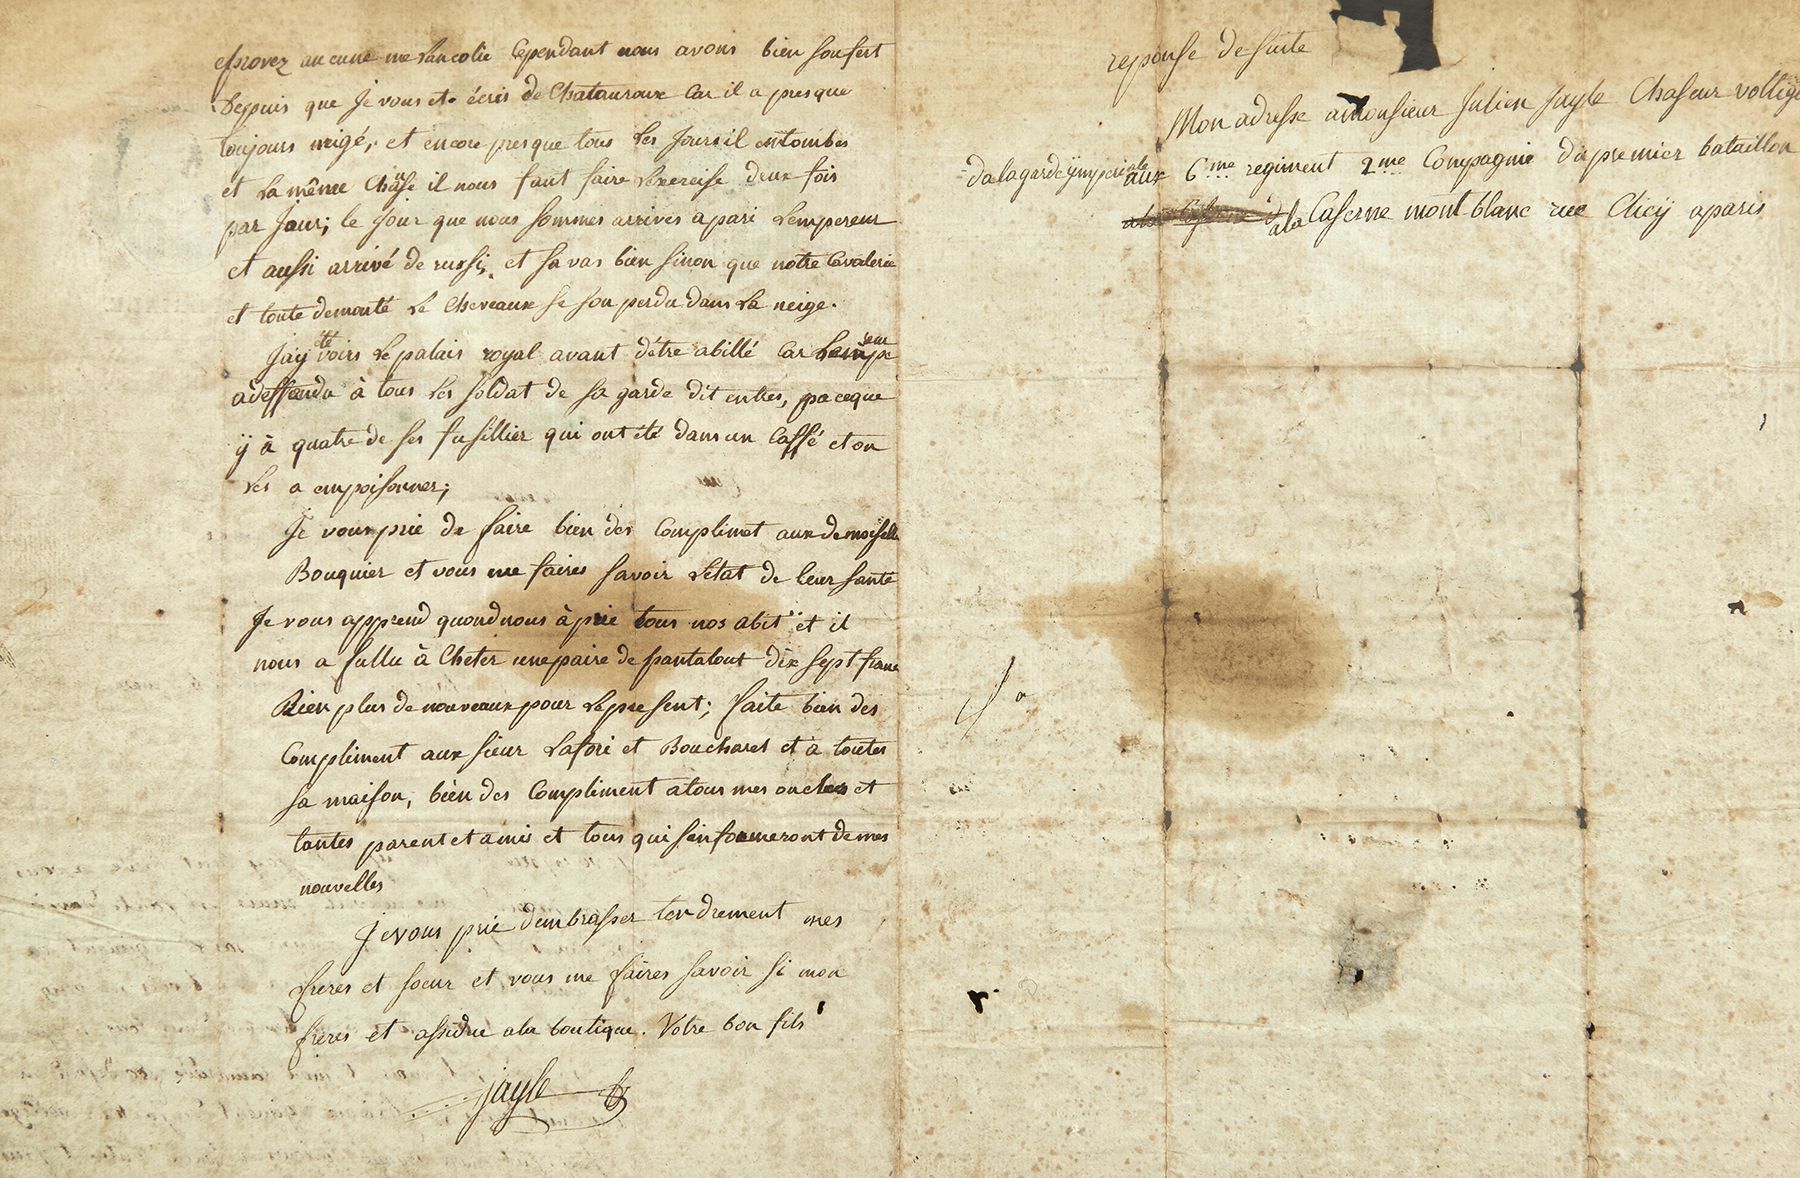 esprovez aucune melancolie Cependant nous avons bien soufert
Depuis que Je vous et écris de Chatauroux Car il a presque
toujours neigé, et encore presque tous les Jours il entombes
et la même Chause il nous faut faire lexereise deux fois
par Jour; le Jour que nous sommes arrives a pari Lempereur
et aussi arrivé de russi, et sa vas bien sinon que notre Cavalerie
et toute demonté le Cheveaux se son perdu dans la neige.
Jay été voirs le palais royal avant dêtre abillé Car Lempereur
a deffandu à tous les soldat de sa garde dit entres, paceque
ÿ à quatre de ses fusillier qui ont été dans un Caffé et on
les a empoisonner;
Je vous prie de faire bien des Complimet aux demoiselle
Bouquier et vous me faires savoir l'état de leur santé
Je vous apprend quond nous à prie tous nos abit et il
nous a fallu à Cheter une paire de pantalont dix sept franc
Rien plus de nouveaux pour le present; faite bien des
Compliment aux sieur Lafore et Boucharel et a toutes
sa maison, bien des Compliment a tous mes oncles et
tantes parent et amis et tous qui sinformeront de mes
nouvelles
Je vous prie dembrasser tendrement mes
freres et soeur et vous me faires savoir si mon
freres et assidue ala boutique. Votre bon fils
jayle
reponse de suite
Mon adresse a monsieur Julien Jayle Chaseur voltige
dalagardeÿmperiale aux 6me regiment 2me Compagnie da premier bataillon
ala Caserne mont blanc rue Clicÿ a paris